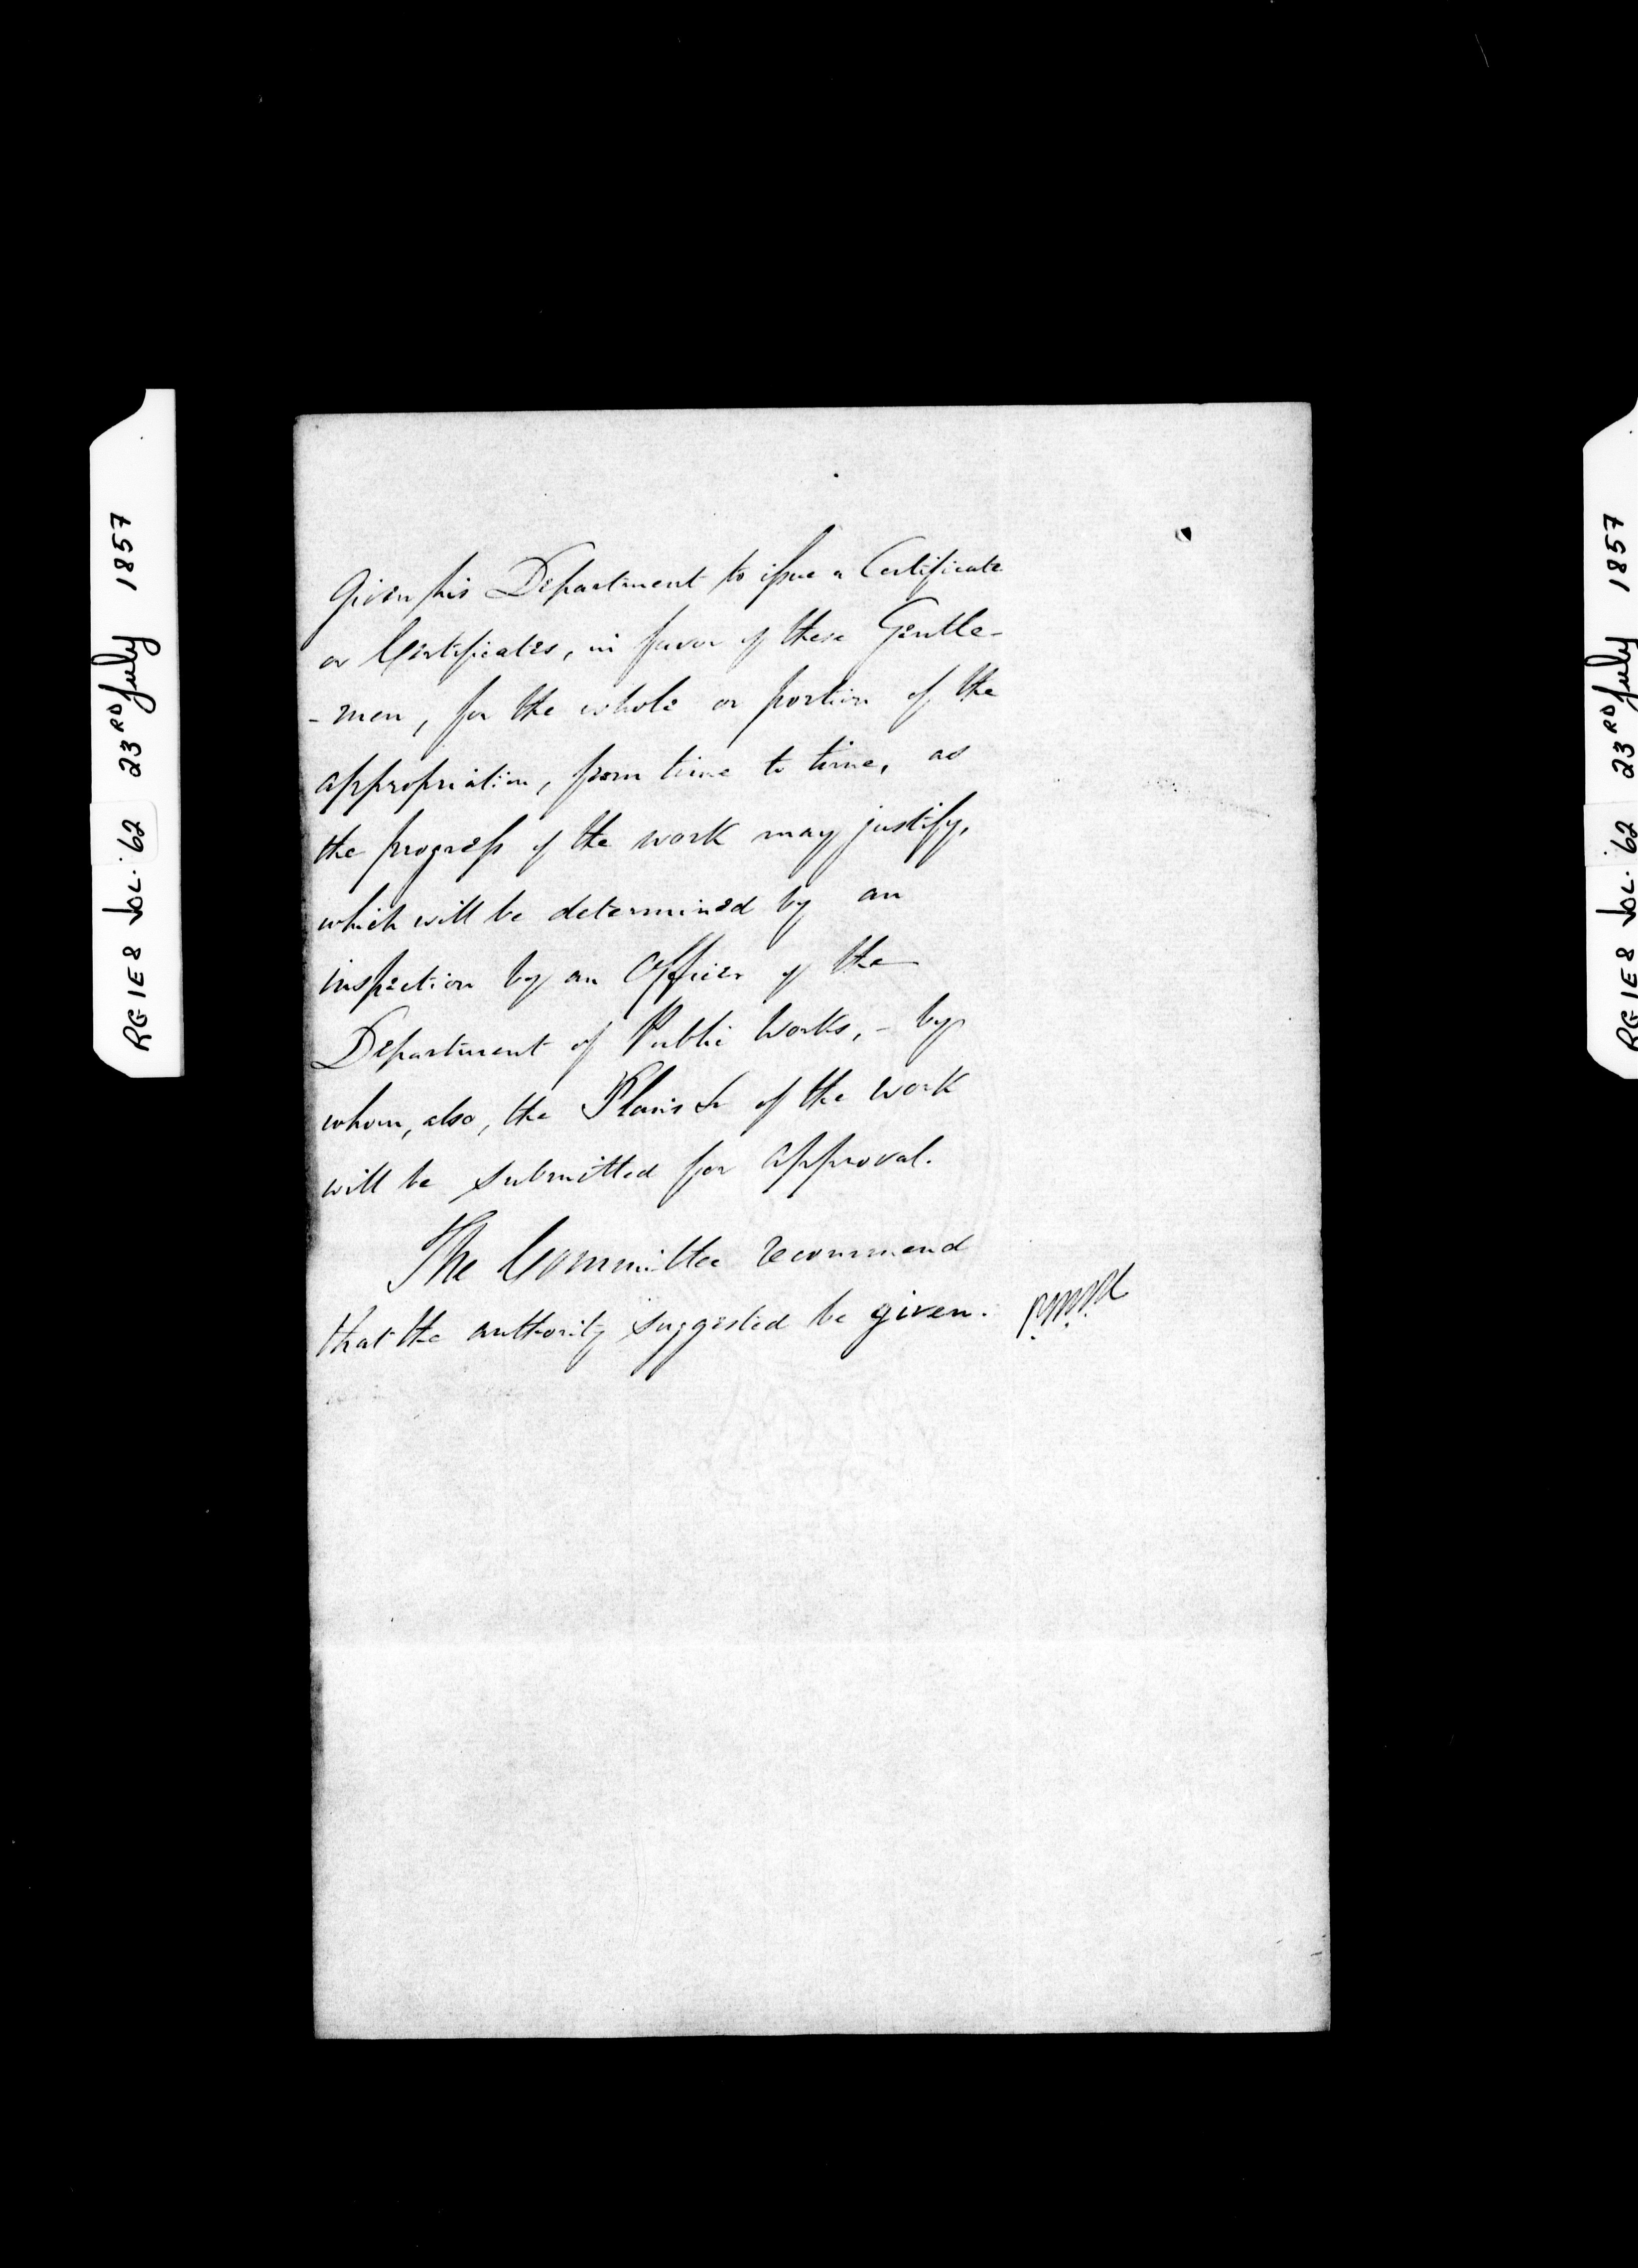 given his Department to issue a Certificate
or Certificates, in favor of these Gentle-
-men, for the whole or portion of the
appropriation, from time to time, as
the progress of the work may justify,
which will be determined by an
inspection by an Officer of the
Department of Public Works, - by
whom, also, the Plans &c of the work
will be submitted for approval.
The Committee recommend
that the authority suggested be given.
RG 1 E 8 VOL. 62 23RD July 1857
RG 1 E 8 VOL. 62 23RD July 1857